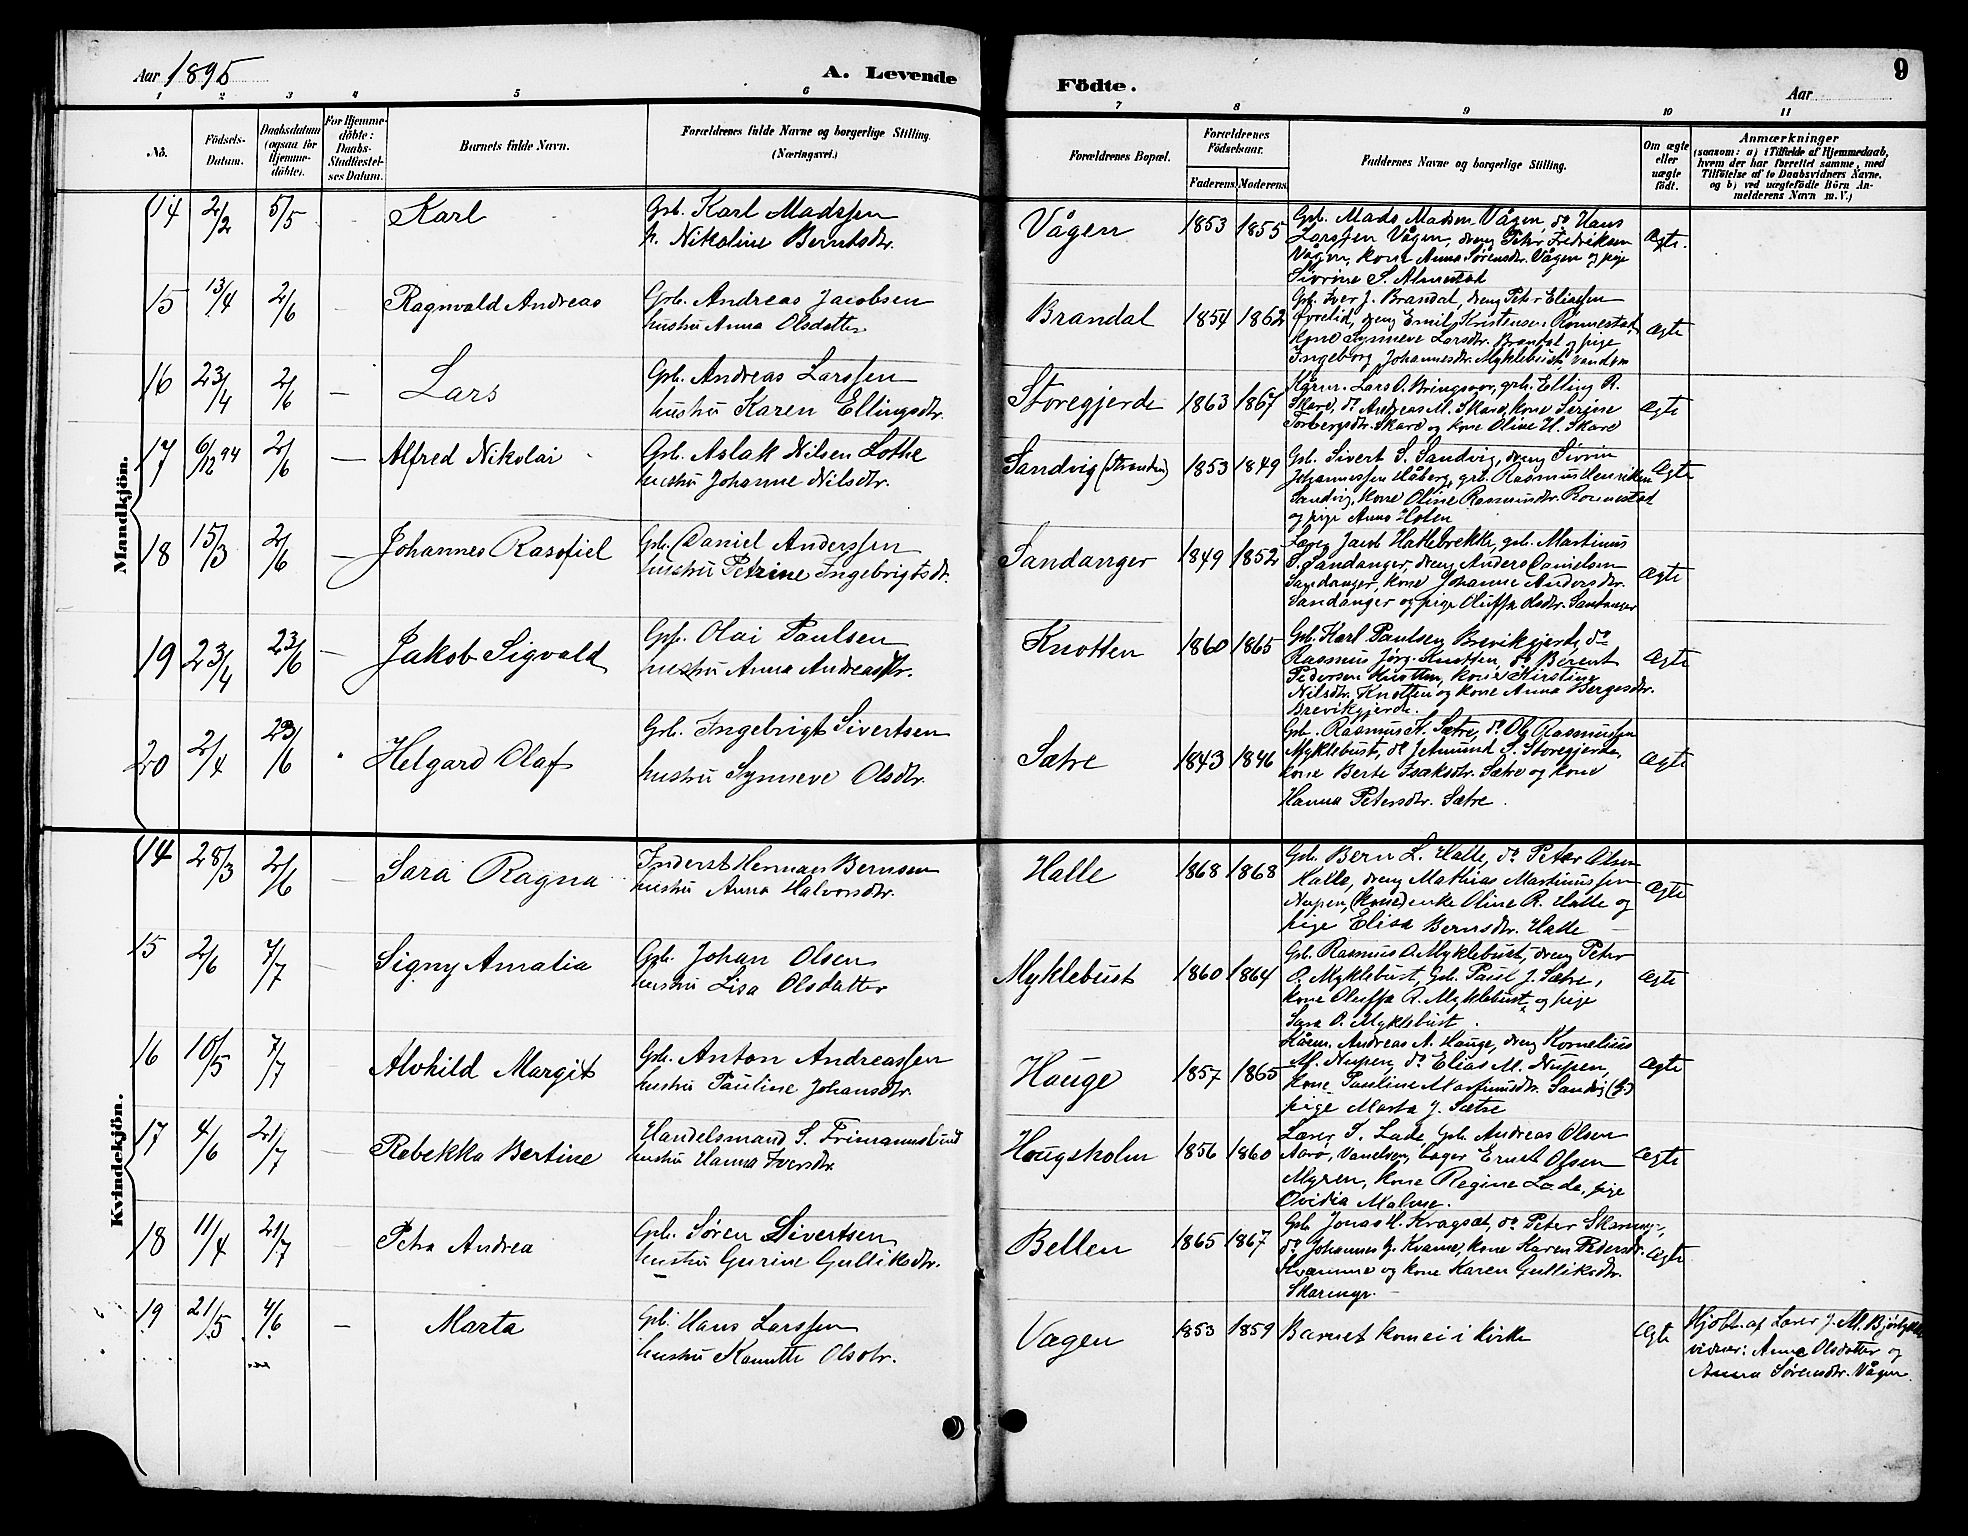 Aar 1895
A. Levende
Födte.
Aar
9
1 2 3 4 5 6 7 8 9 10 11
No.
Födsels-Datum.
Daabsdatum (ogsaa for Hjemmedöbte).
For Hjemmedöbte: Daabs-Stadfæstelses Datum.
Barnets fulde Navn.
Forældrenes fulde Navne og borgerlige Stilling. (Næringsvei.)
Forældrenes Bopæl.
Forældrenes Födselsaar.
Faderens. Moderens.
Faddernes Navne og borgerlige Stilling.
Om ægte eller uægte födt.
Anmærkninger
(saasom: a) i Tilfælde af Hjemmedaab,
hvem der har forrettet samme, med
Tilföielse af to Daabsvidners Navne,
og b) ved uægtefödte Börn Anmelderens Navn m. V.)
Mandkjön.
14 2/2 5/5 Karl
Gb. Karl Madssen
h. Nikoline Berntsdtr.
Vågen 1853 1855
Gb. Mads Madsen Vågen, do Hans
Larssen Vågen, dreng Peter Fredriksen
Vågen, kone Anna Sørensdtr. Vågen og pige
Sivrine S. Almestad
Ægte.
15 13/4 2/6 – Ragnvald Andreas
Grb. Andreas Jacobsen
hustru Anna Olsdatter
Brandal 1854 1862
Gb. Iver J. Brandal, dreng Peter Eliassen
dreng Emil Kristensen Rönnestad,
kone Synneve Larsdtr. Brandal og pige
Ingeborg Johannesdtr. Myklebust,
Ægte
16 23/4 2/6 – Lars
Gb. Andreas Larssen
hustru Karen Ellingsdtr.
Storegjerde 1863 1867
Lars O. Bringsvor, grb. Elling R.
Skare, do Andreas M. Skare, kone Serine
Torbergsdtr. Skare og kone Oline H. Skare
Ægte
17 6/12 94 2/6 – Alfred Nikolai
Gb. Aslak Nilsen Lothe
hustru Johanne Nilsdtr.
Sandvig (Stranden) 1853 1849
Gb. Sivert S. Sandvig, dreng Sivrin
Johannessen Håberg, grb. Rasmus Henriksen
Sandvig, kone Oline Rasmusdtr. Rönnestad
og pige Anna Holen
Ægte
18 15/3 2/6 – Johannes Rasofiel
Gb. Daniel Anderssen
hustru Petrine Ingebrigtsdtr.
Sandanger 1849 1852
Lærer Jacob Hattebrekke, gb. Martinus
S. Sandanger, dreng Anders Danielsen
Sandanger, kone Johanne Andersdtr.
Sandanger og pige Oluffa Olsdtr. Sandanger
Ægte
19 23/4 23/6 – Jakob Sigvald
Gb. Olai Paulsen
hustru Anna Andreasdtr.
Knotten 1860 1865
Gb. Karl Paulsen Brevikgjerde, do
Rasmus Jörg. Knotten, do Berent
Pedersen Knotten, kone Kirstine
Nilsdtr. Knotten og kone Anna Bergesdtr.
Brevikgjerde.
Ægte
20 2/4 23/6 Helgard Olaf
Grb. Ingebrigt Sivertsen
hustru Synneve Olsdtr.
Sætre 1843 1846
Gb. Rasmus K. Sætre, do Ole Rasmussen
Myklebust, do Jetmund S. Storegjerde,
kone Berte Isaksdtr. Sætre og kone
Hanna Petersdtr. Sætre.
Ægte
Kvindekjön.
14 28/3 2/6 – Sara Ragna
Inderst Herman Bernsen
hustru Anna Halvorsdtr.
Halle 1868 1868
Gb. Bern L. Halle, do Peter Olsen
Halle, dreng Mathias Martinussen
Nupen, (kone) enke Oline R. Halle og
pige Elisa Bernsdtr. Halle –
Ægte
15 2/6 7/7 – Signy Amalia
Gb. Johan Olsen
hustru Lisa Olsdatter
Myklebust 1860 1864
Gb. Rasmus O. Myklebust, dreng Peter
O. Myklebust, Gb. Paul J. Sætre,
kone Oluffa R. Myklebust, og pige
Sara O. Myklebust.
Ægte
16 10/5 7/7 Alvhild Margit
Gb. Anton Andreassen
hustru Pauline Johansdtr.
Hauge 1857 1865
Andreas A. Hauge, dreng Kornelius
M. Nupen, do Elias M. Nupen,
kone Pauline Martinusdtr. Sandvig (G.)
pige Marta J. Sætre
Ægte
17 4/6 21/7 Rebekka Bertine
Handelsmand S. Frimannslund
hustru Hanna Iversdtr.
Hougsholm 1856 1860
Lærer S. Lade, Gb. Andreas Olsen
Aarö, Vanelven, bager Ernst Olsen
Myren, kone Regine Lade, pige
Ovidia Malme.
Ægte
18 11/4 21/7 Petra Andrea
Gb. Søren Sivertsen
hustru Gurine Gulliksdtr.
Bellen 1865 1867
Gb. Jonas H. Kragset, do Peter Skaremyr,
do Johannes G. Kvame, kone Karen Pedersdtr.
Kvamme og kone Karen Gulliksdtr.
Skaremyr. –
Ægte
19 21/5 4/6 – Marta
Gb. Hans Larssen
hustru Kanutte Olsdtr.
Vågen 1853 1859
Barnet kom ei i kirke
Ægte
Hjdbt. af Lærer J. M. Björlykke
vidner: Anne Olsdatter og
Anna Sørensdtr. Vågen.